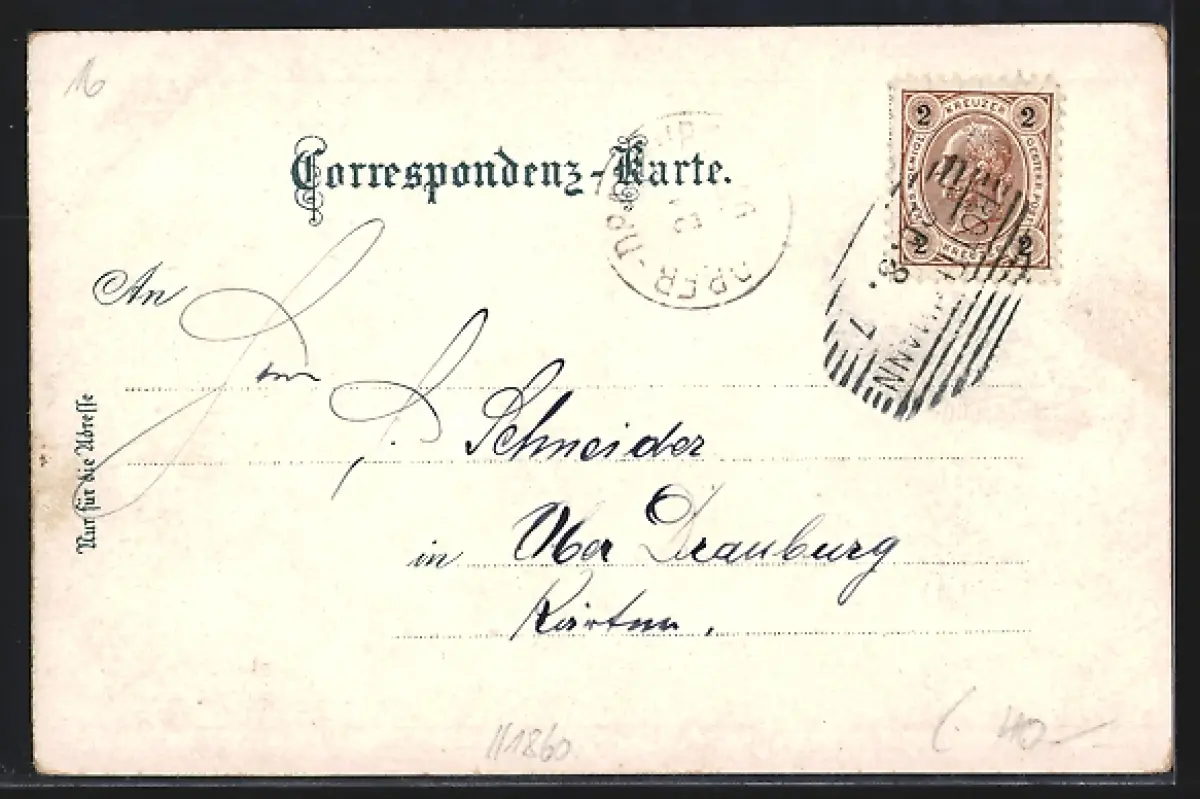 16
Correspondenz-Karte.
2 KREUZER 2
2 KREUZER 2
OBER-DRAUBURG
7 8.
An
Schneider
in Ober Drauburg
Kärten.
Nur für die Adresse
111860
40